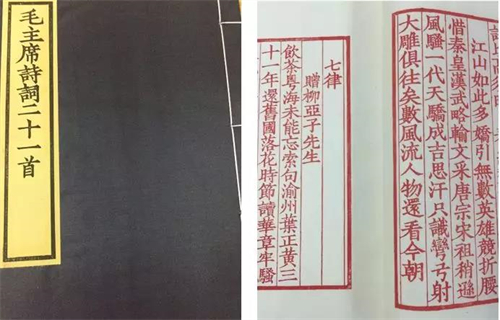 毛主席詩詞二十一首
江山如此多嬌引無數英雄競折腰
惜秦皇漢武略輸文采唐宗宋祖稍遜
風騷一代天驕成吉思汗只識彎弓射
大雕俱往矣數風流人物還看今朝
七律
贈柳亞子先生
飲茶粵海未能忘索句渝州葉正黃三
十一年還舊國落花時節讀華章牢騷